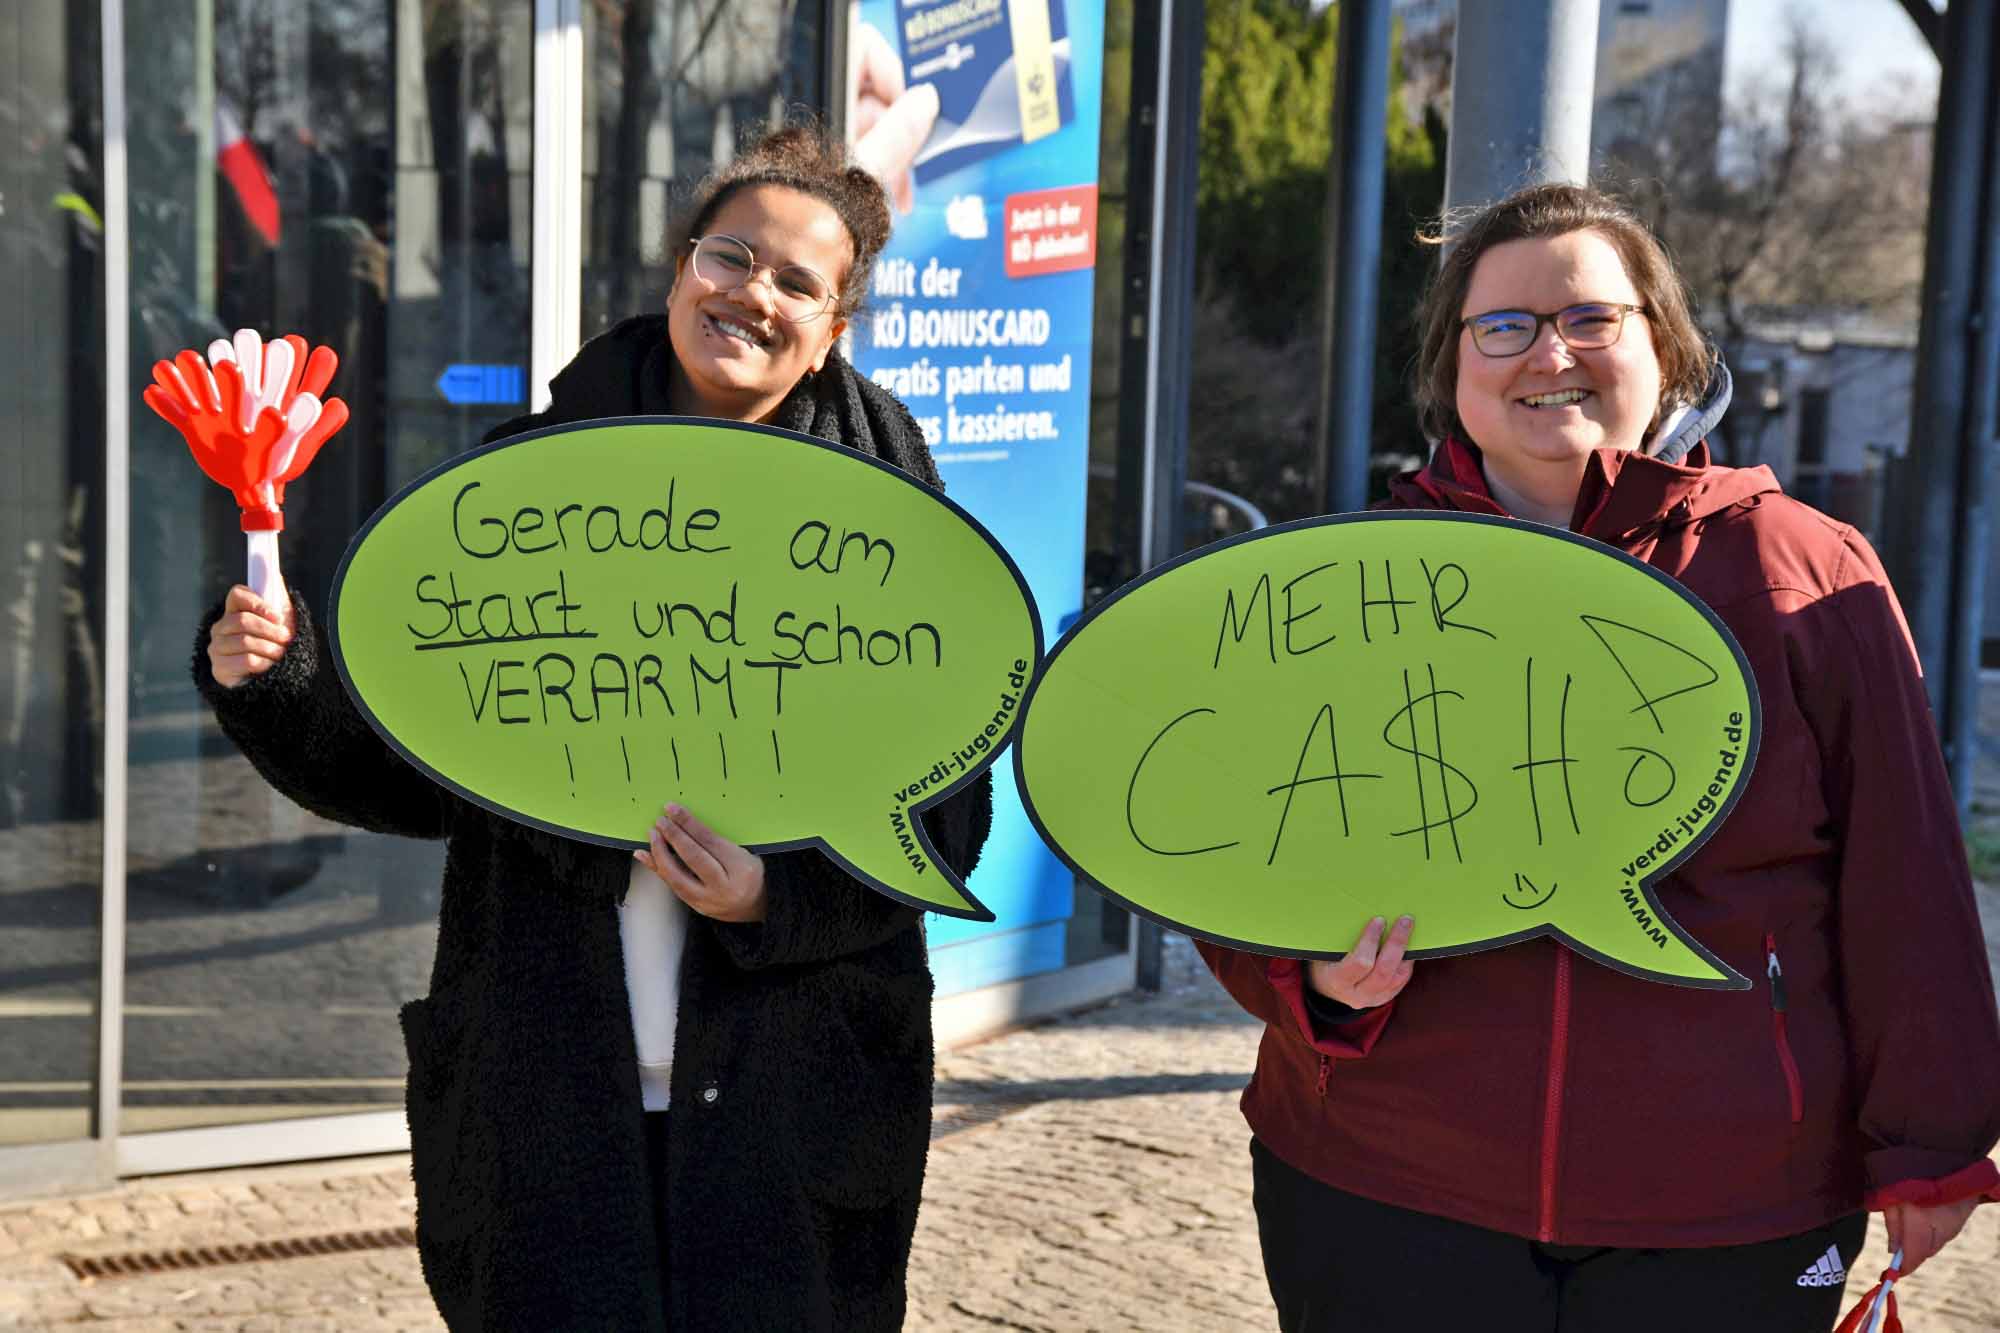 KÖ BONUSCARD
Jetzt in der
KÖ abholen!
Mit der
KÖ BONUSCARD
gratis parken und
es kassieren.
Gerade am
Start und schon
VERARMT
! ! ! ! !
www.verdi-jugend.de
MEHR
CA$H!
www.verdi-jugend.de
adidas